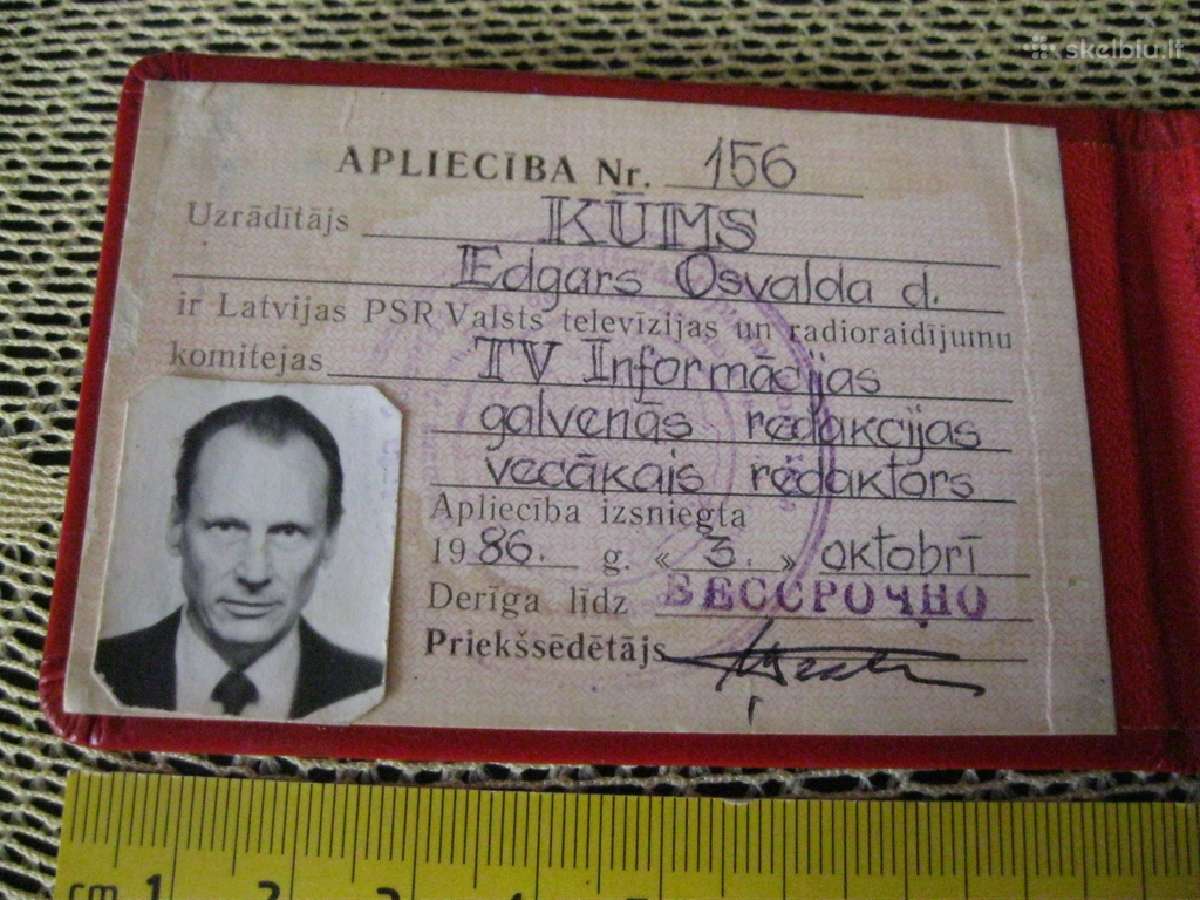 skelbiu.lt
APLIECĪBA Nr. 156
Uzrādītājs KŪMS
Edgars Osvalda d.
ir Latvijas PSR Valsts televīzijas un radioraidījumu
komitejas TV Informācijas
galvenās redakcijas
vecākais redaktors
Apliecība izsniegta
1986. g. «3.» oktobrī
Derīga līdz БЕССРОЧНО
Priekšsēdētājs
cm 1 2 3 4 5